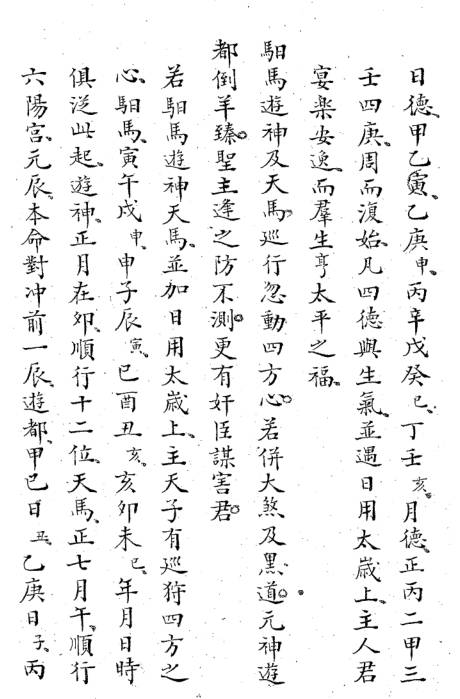 日德甲乙寅乙庚申丙辛戊癸巳丁壬亥月德正丙二甲三
壬四庚周而復始凡四德與生氣並遇日用太歲上主人君
宴樂安逸而羣生亨太平之福
馹馬遊神及天馬廵行忽動四方心若併大煞及黑道元神遊
都倒羊臻聖主逢之防不測更有奸臣謀害君
若馹馬遊神天馬並加日用太歲上主天子有廵狩四方之
心馹馬寅午戌申申子辰寅巳酉丑亥亥卯未巳年月日時
俱泛此起遊神正月在卯順行十二位天馬正七月午順行
六陽宮元辰本命對冲前一辰遊都甲巳日丑乙庚日子丙